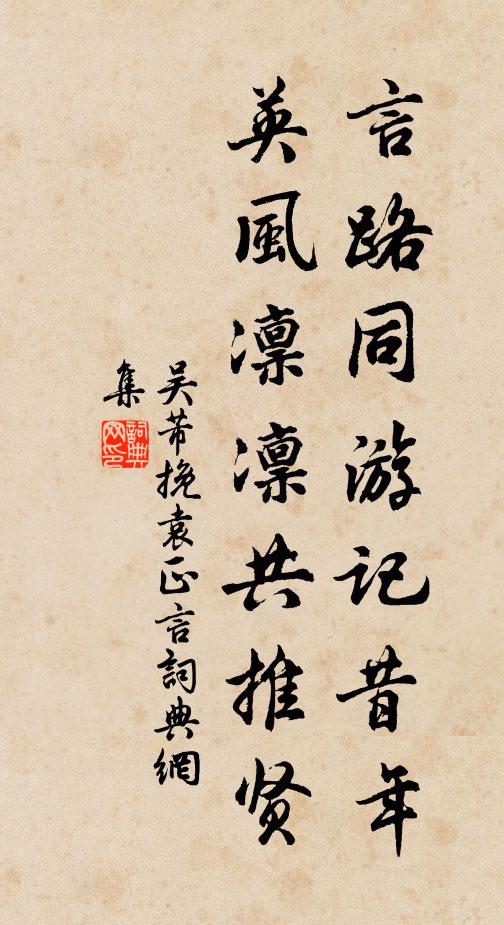 言路同游记昔年
英風凛凛共推贤
吴芾挽袁正言詞典網
集
詞典
网印